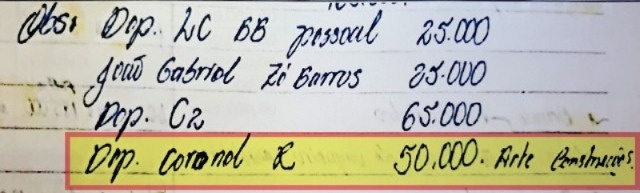 Obs: Dep. LC BB pessoal 25.000
João Gabriel Zé Barros 25.000
Dep. C2 65.000
Dep. Coronel R 50.000. Arte Construções.